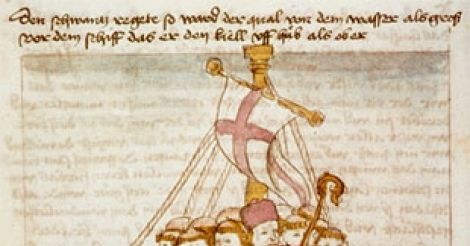 den schwantz regete so ward der qual von dem wasser als groß
vor dem schiff das er den kiell uff hůb als ober